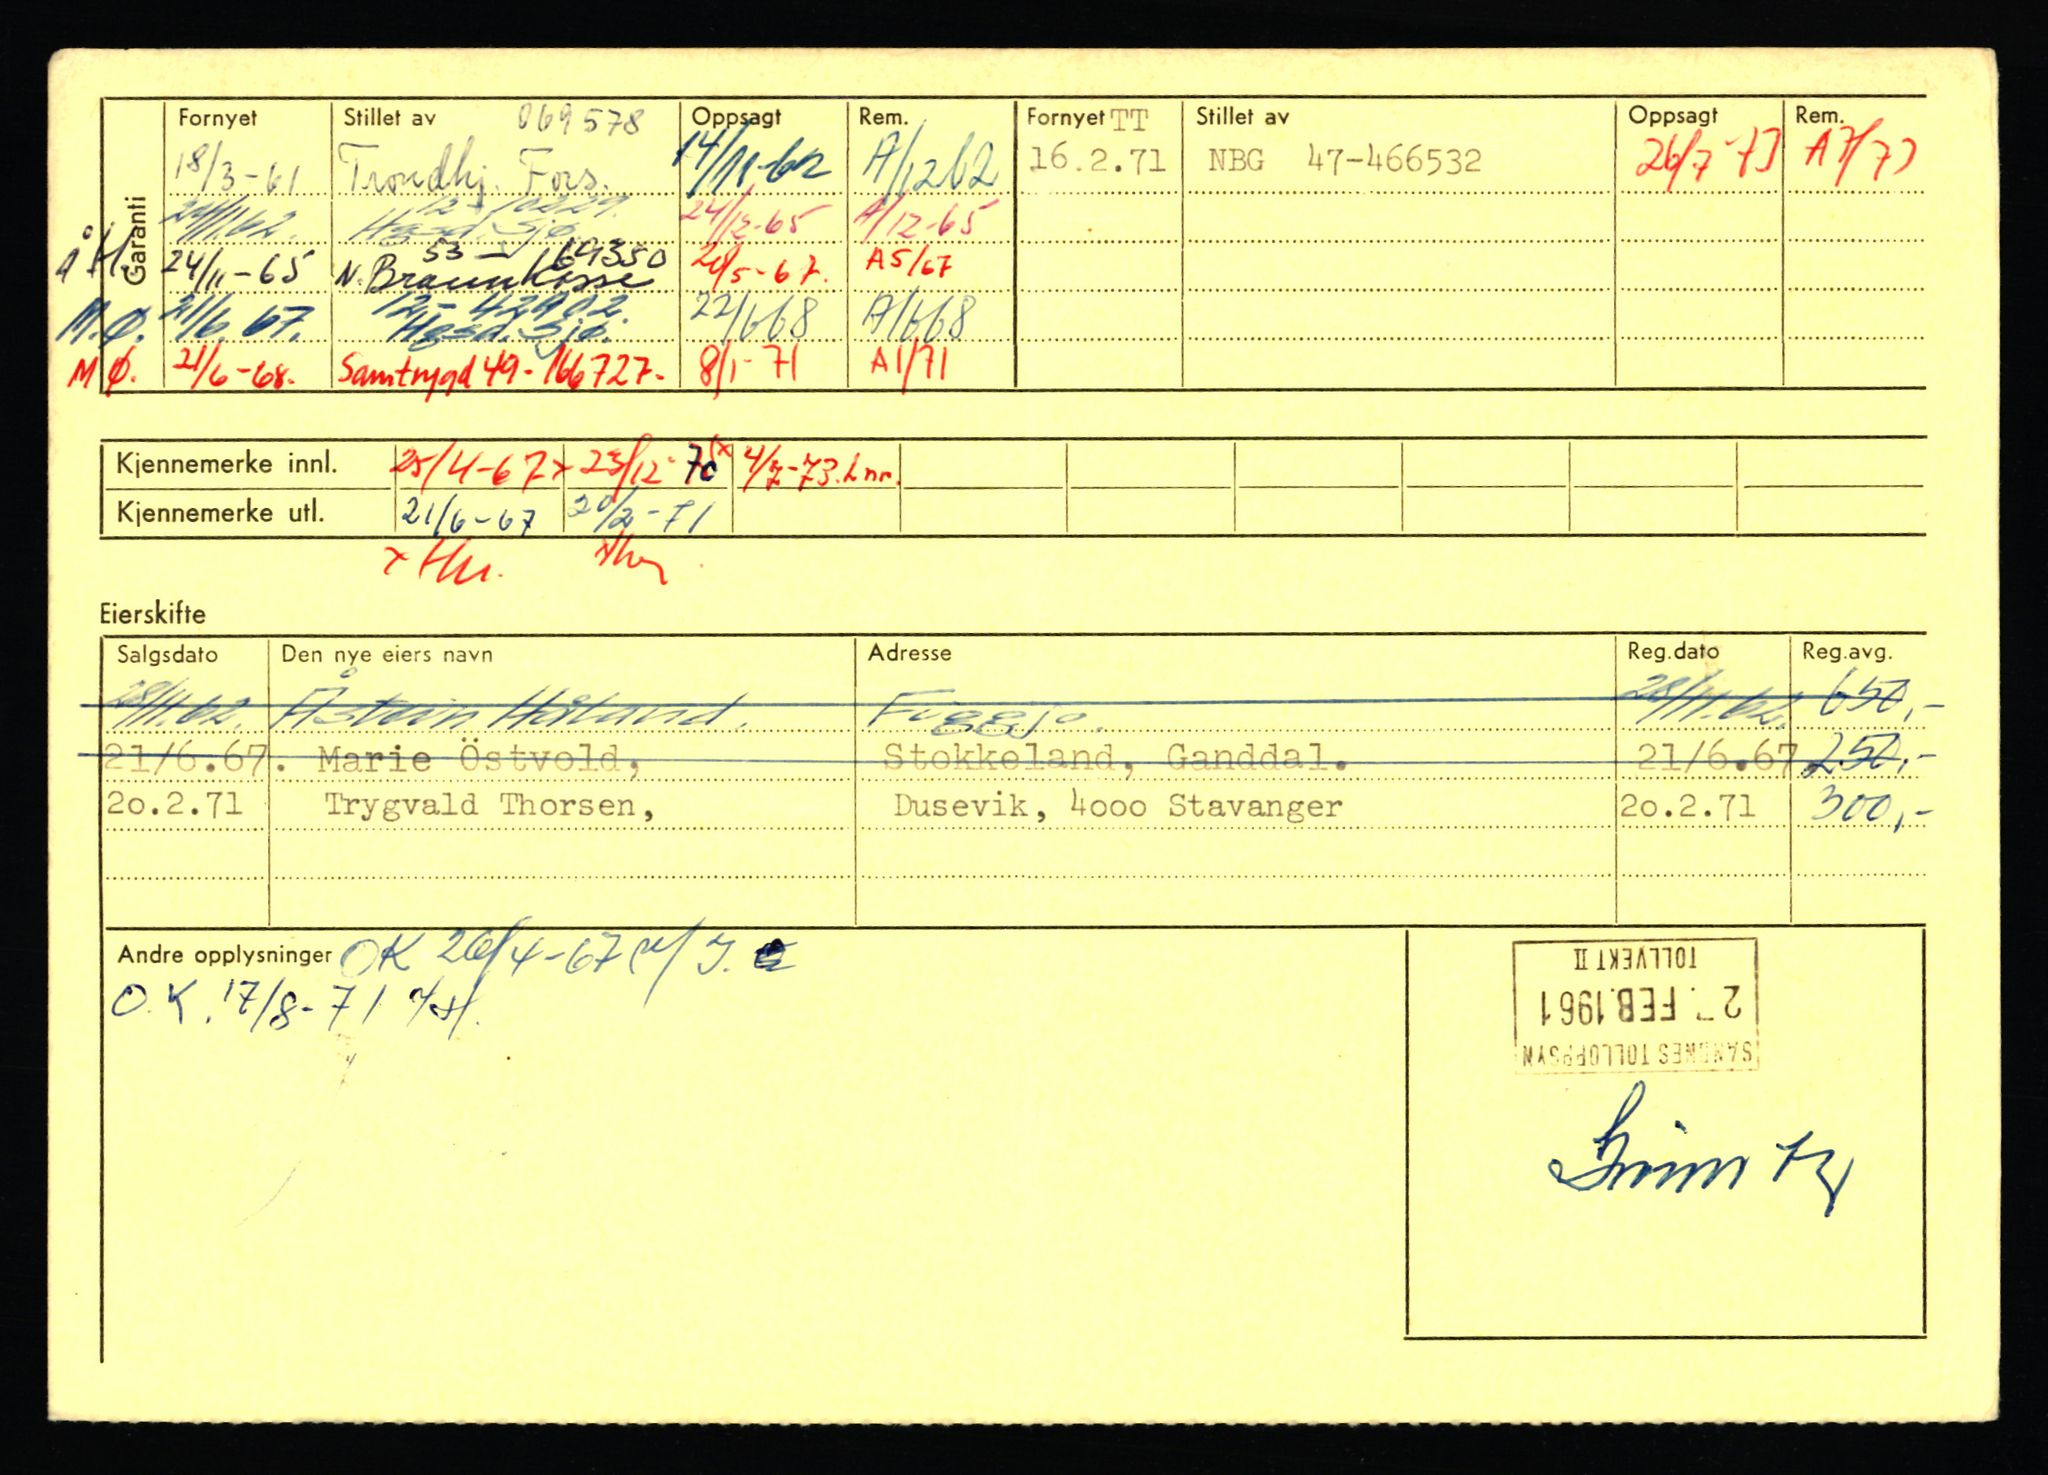 Garanti
Fornyet Stillet av 069578 Oppsagt Rem. Fornyet TT Stillet av Oppsagt Rem.
18/3-61 Trondhj. Fors. 14/11-62 A/1262 16.2.71 NBG 47-466532 26/7-73 A7/73
12-10229.
24/11.62. Hgsd. Sjø. 24/12-65 A/12-65
53-169350
Å H. 24/11-65 N. Braunkasse 20/5-67. A5/67
12-42902.
M.Ø. 21/6.67. Hgsd. Sjø. 22/668 A/668
M Ø. 21/6-68. Samtrygd 49-166727- 8/1-71 A1/71
Kjennemerke innl. 25/4-67x 23/12-70 x 4/7-73. Lnr.
Kjennemerke utl. 21/6-67 20/2-71
Eierskifte
Salgsdato Den nye eiers navn Adresse Reg.dato Reg.avg.
28/11.62. Åstein Håland. Figgjo. 28/11.62. 650,-
21/6.67. Marie Östvold, Stokkeland, Ganddal. 21/6.67 250,-
2o.2.71 Trygvald Thorsen, Dusevik, 4ooo Stavanger 2o.2.71 300,-
Andre opplysninger OK 26/4-67
O.K. 17/8-71
SANDNES TOLLOPPSYN
27 FEB.1961
TOLLVEKT II